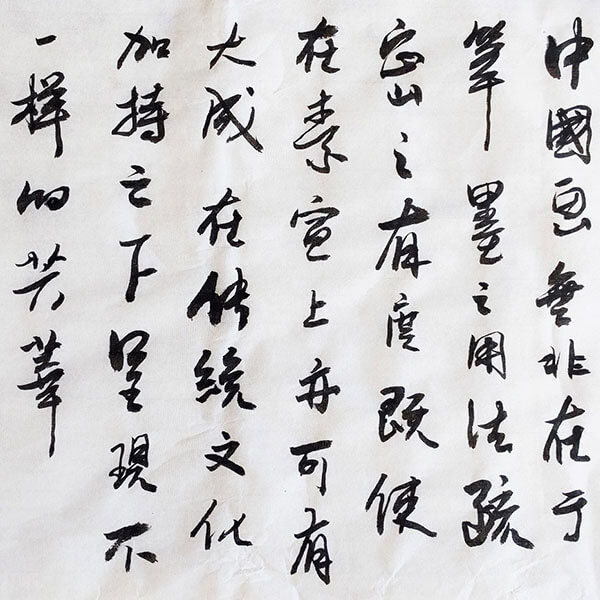 中國画無非在于
筆墨之用法疏
密之有度既使
在素宣上亦可有
大成在传統文化
加持之下呈現不
一样的芳華